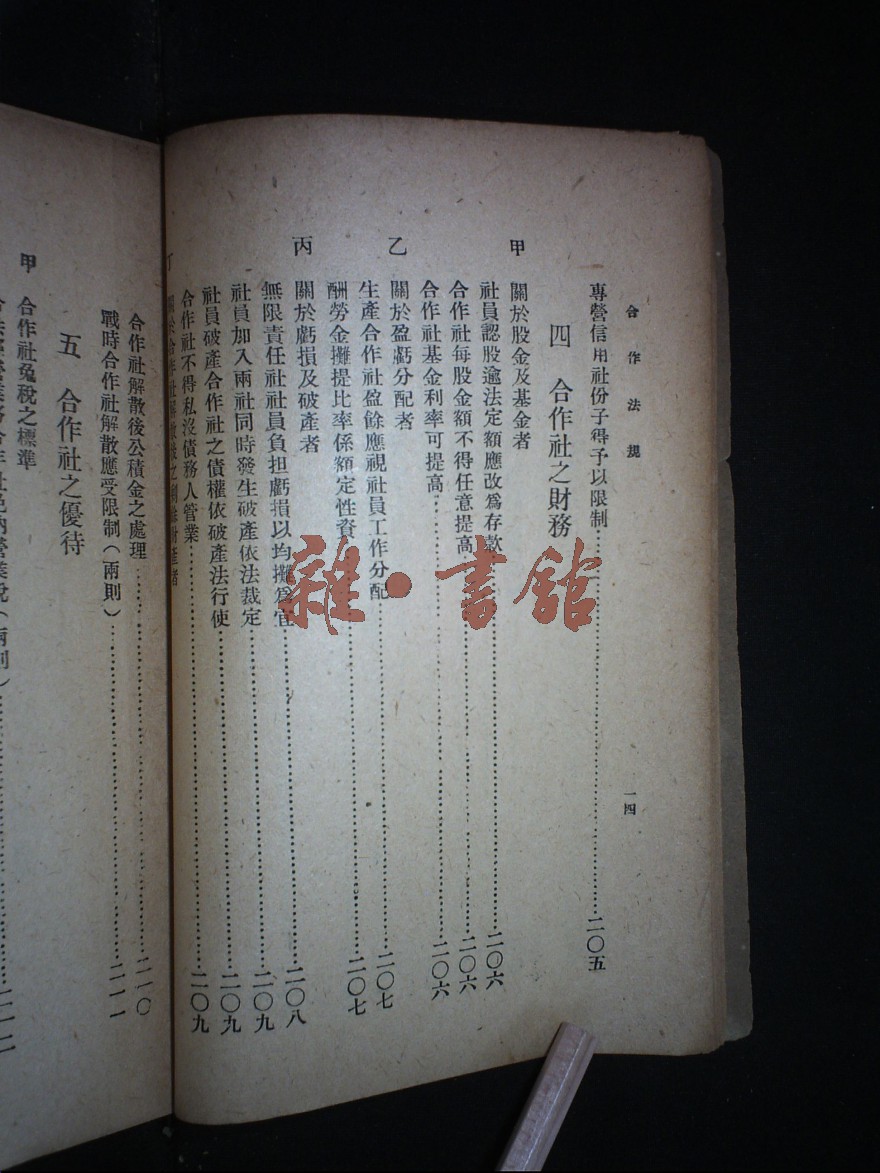 合作法規
一四
專營信用社份子得予以限制……二〇五
四 合作社之財務
甲 關於股金及基金者
社員認股逾法定額應改為存款……二〇六
合作社每股金額不得任意提高……二〇六
合作社基金利率可提高……二〇六
乙 關於盈虧分配者
生產合作社盈餘應視社員工作分配……二〇七
酬勞金攤提比率係額定性資……二〇七
丙 關於虧損及破產者
無限責任社社員負担虧損以均攤為宜……二〇八
社員加入兩社同時發生破產依法裁定……二〇九
社員破產合作社之債權依破產法行使……二〇九
合作社不得私沒債務人管業……二〇九
丁 關於合作社解散後之剩餘財產者
合作社解散後公積金之處理……二一〇
戰時合作社解散應受限制(兩則)……二一一
五 合作社之優待
甲 合作社免稅之標準
雜·書館